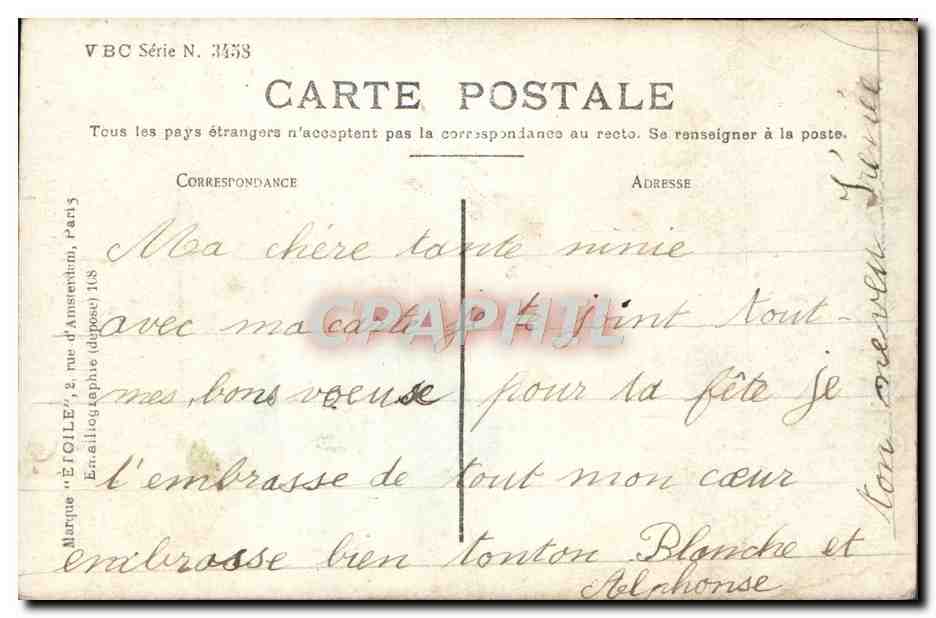 VBC Série N. 3458
CARTE POSTALE
Tous les pays étrangers n'acceptent pas la correspondance au recto. Se renseigner à la poste.
CORRESPONDANCE
ADRESSE
Ma chére tante ninie
avec ma carte je te joint tout
mes bons voeuse pour ta fête je
t'embrasse de tout mon cœur
embrasse bien tonton Blanche et
Alphonse
ton neveu Irénée
Marque "ÉTOILE", 2, rue d'Amsterdam, Paris
Emailiographie (déposé) 108
CPAPHIL